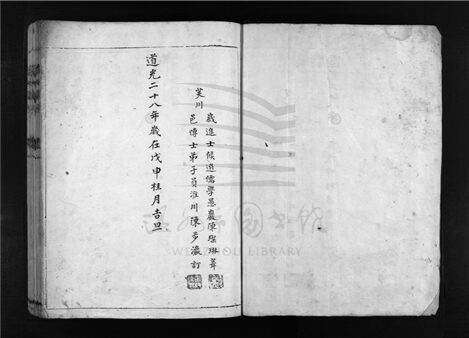 歲進士候選儒學愚巖陳璨琳葺
芙川
邑博士弟子員淮川陳步瀛訂
道光二十八年歲在戊申桂月吉旦
WENZHOU LIBRARY